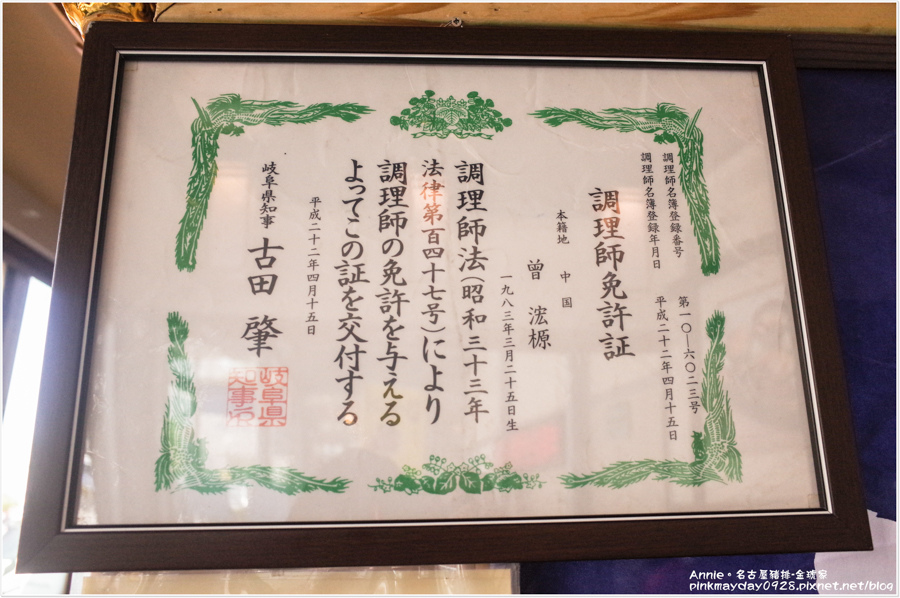 調理師名簿登録番号 第一〇―六〇二三号
調理師名簿登録年月日 平成二十二年四月十五日
調理師免許証
本籍地 中国
曾 浤榞
一九八三年三月二十五日生
調理師法(昭和三十三年
法律第百四十七号)により
調理師の免許を与える
よってこの証を交付する
平成二十二年四月十五日
岐阜県知事 古田 肇
岐阜県
知事之印
Annie。名古屋豬排-金琥家
pinkmayday0928.pixnet.net/blog